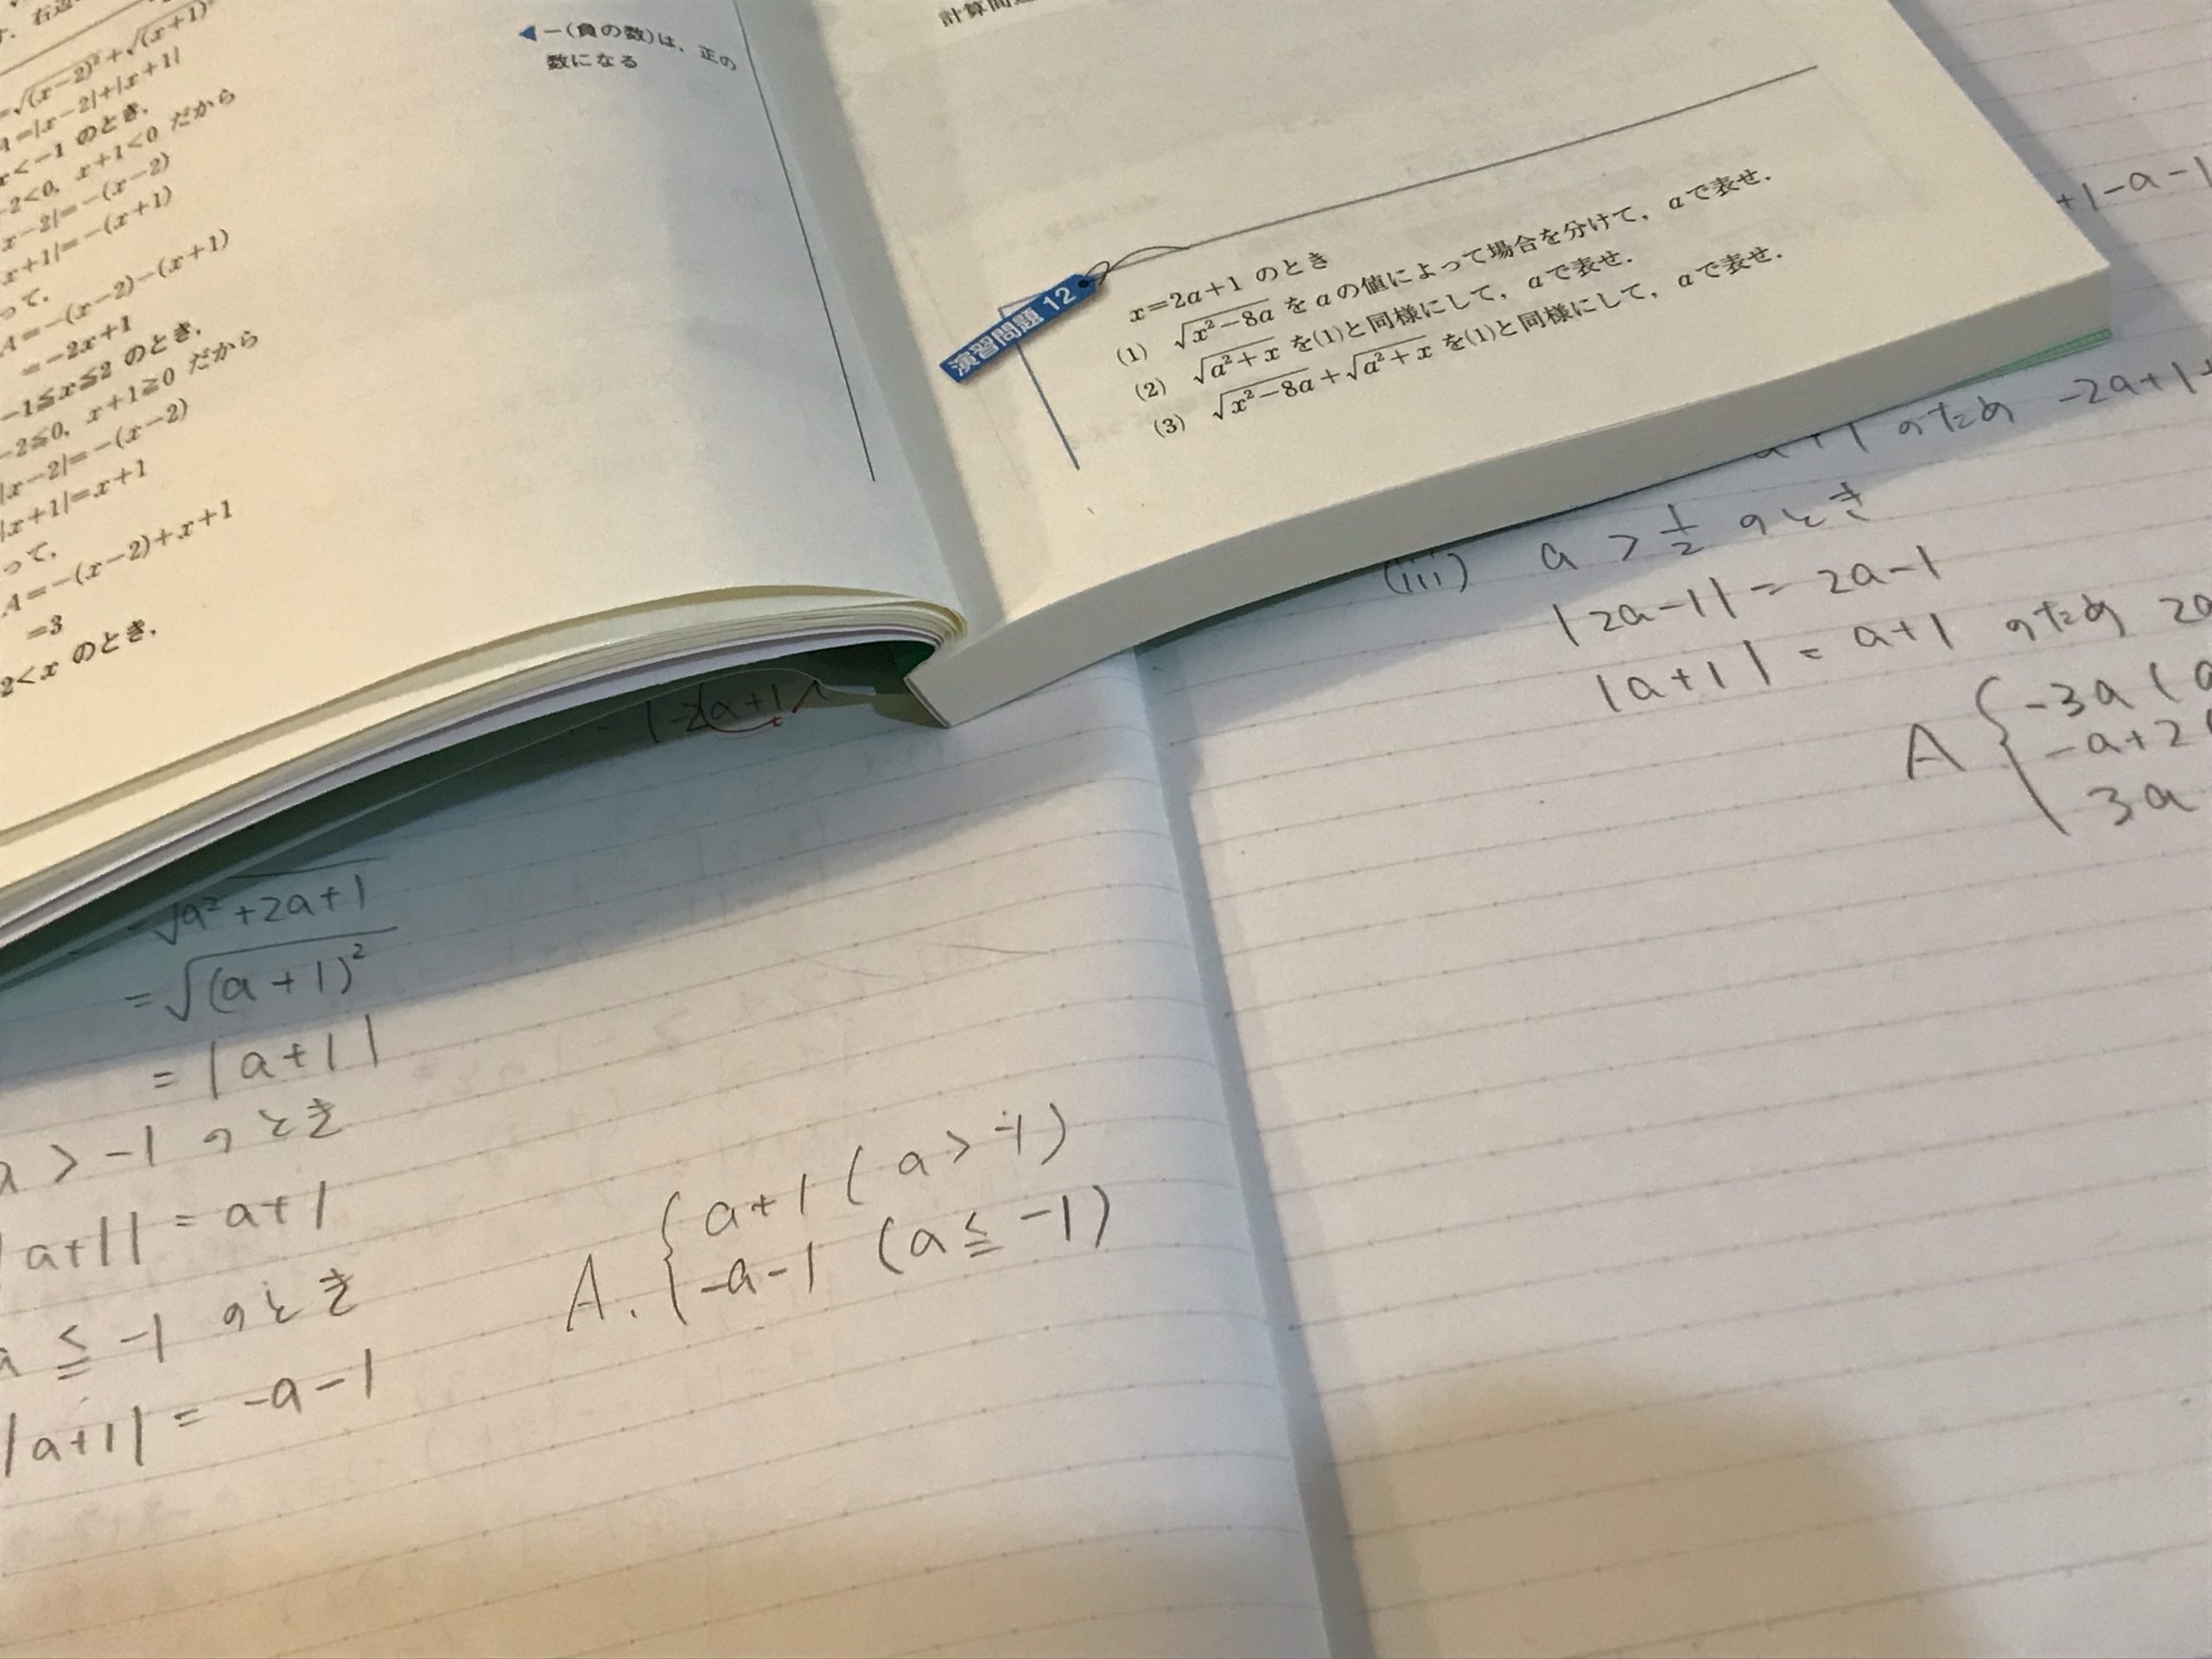 右辺
=√(x-2)²+√(x+1)²
A=|x-2|+|x+1|
x<-1 のとき,
-2<0, x+1<0 だから
x-2|=-(x-2)
x+1|=-(x+1)
って,
A=-(x-2)-(x+1)
=-2x+1
-1≦x≦2 のとき,
-2≦0, x+1≧0 だから
|x-2|=-(x-2)
|x+1|=x+1
って,
A=-(x-2)+x+1
=3
2<x のとき,
◀-(負の数)は, 正の
数になる
計算問
演習問題 12
x=2a+1 のとき
(1) √x²-8a を a の値によって場合を分けて, a で表せ.
(2) √a²+x を(1)と同様にして, a で表せ.
(3) √x²-8a+√a²+x を(1)と同様にして, a で表せ.
√a²+2a+1
=√(a+1)²
=|a+1|
a>-1 のとき
|a+1|=a+1
a≦-1 のとき
|a+1|=-a-1
A. { a+1 (a>-1)
-a-1 (a≦-1)
+1-a-1
a+1 のため -2a+1+
(iii) a>1/2 のとき
|2a-1|=2a-1
|a+1|=a+1 のため 2a
A { -3a (a
-a+2 (
3a